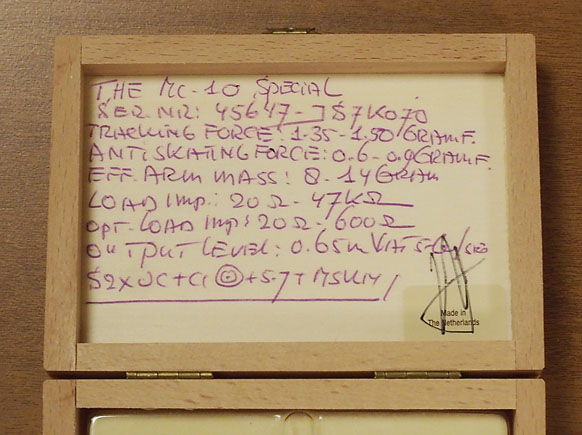 THE MC-10 SPECIAL
SER. NR: 45647-
TRACKING FORCE: 1.35-1.50 GRAM F.
ANTISKATING FORCE: 0.6-0.9 GRAM F.
EFF. ARM MASS: 8-14 GRAM
LOAD IMP.: 20Ω-47KΩ
OPT. LOAD IMP: 20Ω-600Ω
OUTPUT LEVEL: 0.65m
Made in
The Netherlands